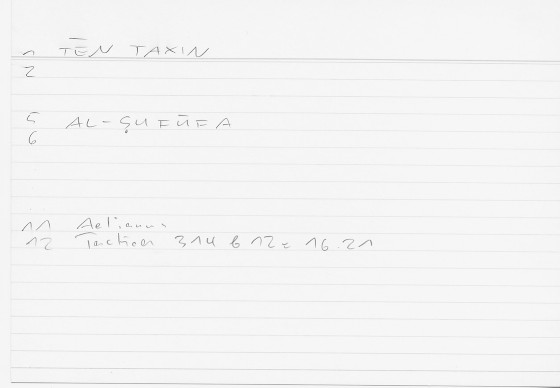 1 TĒN TAXIN
2
5 AL-ṢUFŪFA
6
11 Aelianus
12 Tactica 314 b 12 = 16.21